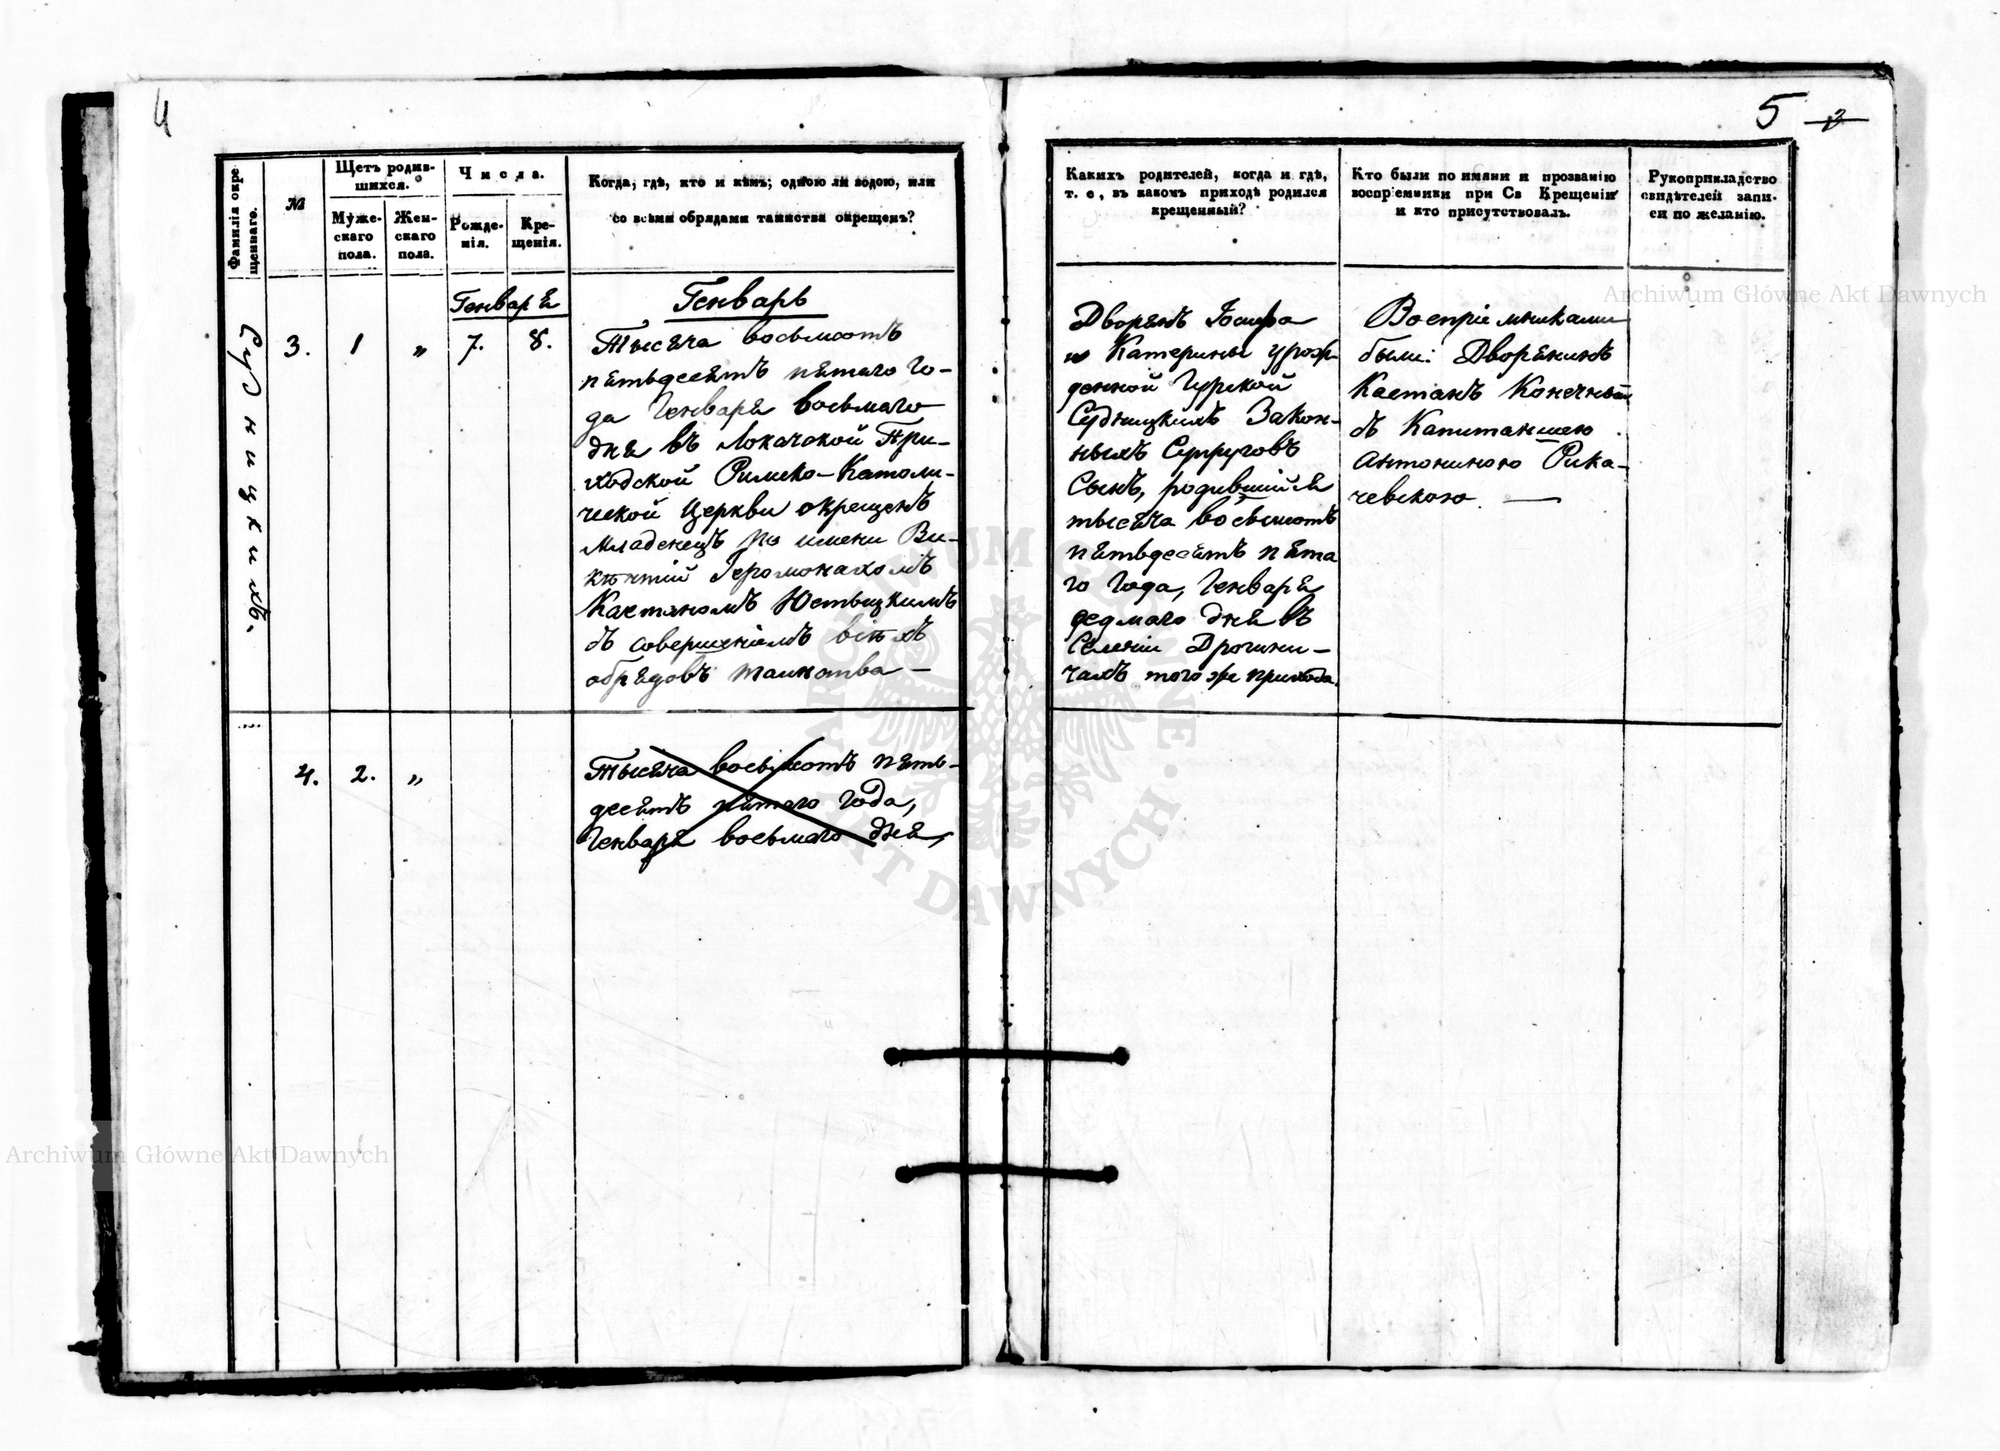 4
Фамилія окре-
щеннаго.
№
Щетъ родив-
шихся.
Муже-
скаго
пола.
Жен-
скаго
пола.
Числа.
Рожде-
нія.
Кре-
щенія.
Когда, гдѣ, кто и кѣмъ; одною ли водою, или
со всѣми обрядами таинства окрещенъ?
Судницкихъ.
3.
1
„
Генваря
7.
8.
Генварь
Тысяча восьмсотъ
пятьдесятъ пятаго го-
да Генваря восьмаго
дня въ Локачской При-
ходской Римско-Католи-
ческой Церкви окрещенъ
Младенецъ по имени Ви-
кентій Іеромонахомъ
Каетаномъ
съ совершеніемъ всѣхъ
обрядовъ таинства —
4.
2.
„
Тысяча восьмсотъ пять-
десятъ пятаго года,
Генваря восьмаго дня,
5 2
Какихъ родителей, когда и гдѣ,
т. е, въ какомъ приходѣ родился
крещенный?
Кто были по имяни и прозванію
воспріемники при Св Крещеніи
и кто присутствовалъ.
Рукоприкладство
свидѣтелей запи-
си по желанію.
Дворянъ Іосифа
и Катерины урож-
денной Гурской
Судницкихъ Закон-
ныхъ Супруговъ
Сынъ, родившійся
тысяча восьмсотъ
пятьдесятъ пята
го года, Генваря
седмаго дня въ
Селеніи Дрогини-
чахъ того же прихода.
Воспріемниками
были: Дворянинъ
Каетанъ Конечный
съ Капитаншею
Антониною Рика-
чевскою. —
Archiwum Główne Akt Dawnych
Archiwum Główne Akt Dawnych
ARCHIWUM GŁÓWNE AKT DAWNYCH